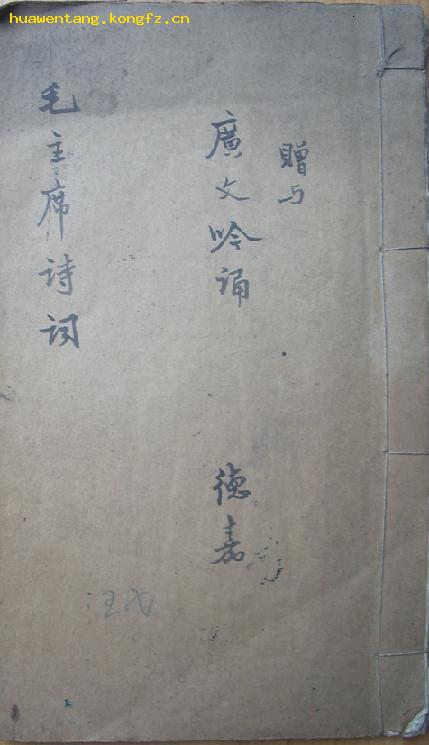 huawentang.kongfz.cn
赠与
廣文吟诵
德嘉
毛主席诗词